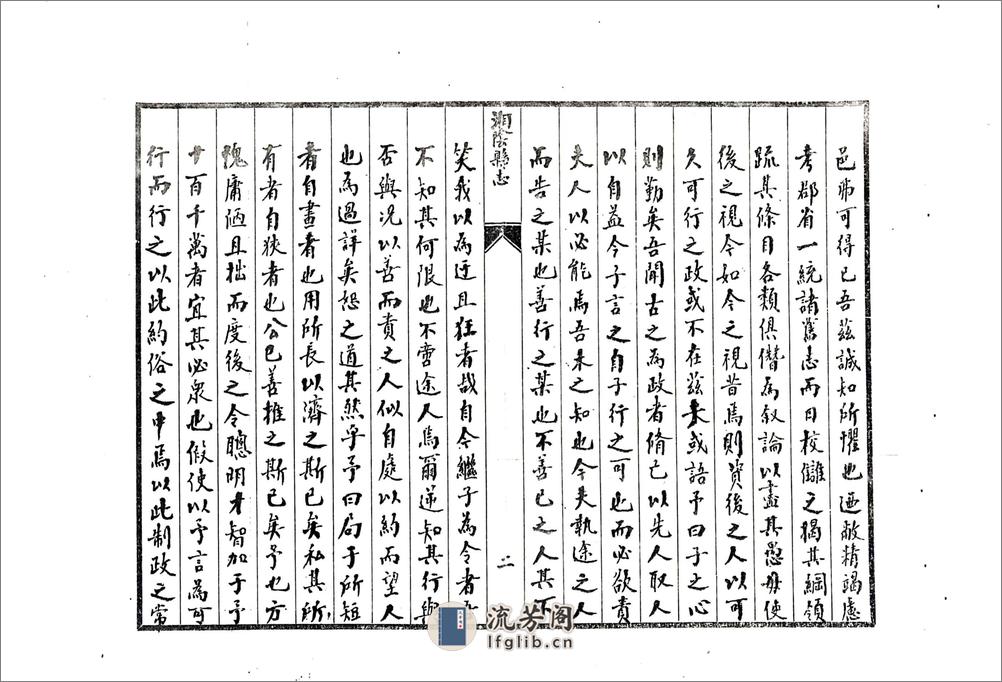 邑弗可得已吾茲誠知所懼也迺敝精竭慮
考郡省一統諸舊志而日校讎之揭其綱領
疏其條目各類俱僭為叙論以盡其愚毋使
後之視今如今之視昔焉則資後之人以可
久可行之政或不在茲乎或語予曰子之心
則勤矣吾聞古之為政者脩己以先人取人
以自益今子言之自子行之可也而必欲責
夫人以必能焉吾未之知也今夫執途之人
而告之某也善行之某也不善已之人其不
湘陰縣志
二
笑我以為迂且狂者哉自今繼子為令者吾
不知其何限也不啻途人焉爾遑知其行與
否與况以善而責之人似自處以約而望人
也為過詳矣恕之道其然乎予曰局于所短
者自畫者也用所長以濟之斯已矣私其所
有者自狹者也公已善推之斯已矣予也方
愧庸陋且拙而度後之令聰明才智加于予
十百千萬者宜其必衆也假使以予言為可
行而行之以此約俗之中焉以此制政之常
流芳阁
lfglib.cn